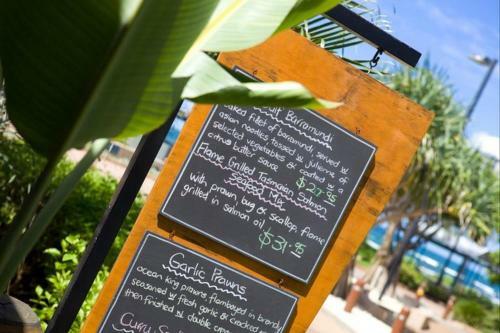 Barramundi
baked fillet of barramundi, served w
asian noodles, tossed w julienne of
selected vegetables & coated w a
citrus butter sauce $27.95
Flame Grilled Tasmanian Salmon
Seafood Mix
with prawn, bug & scallop, flame
grilled in salmon oil
$31.95
Garlic Prawns
ocean king prawns flambayed in brandy
seasoned w fresh garlic & cracked
then finished w double cream
Curry